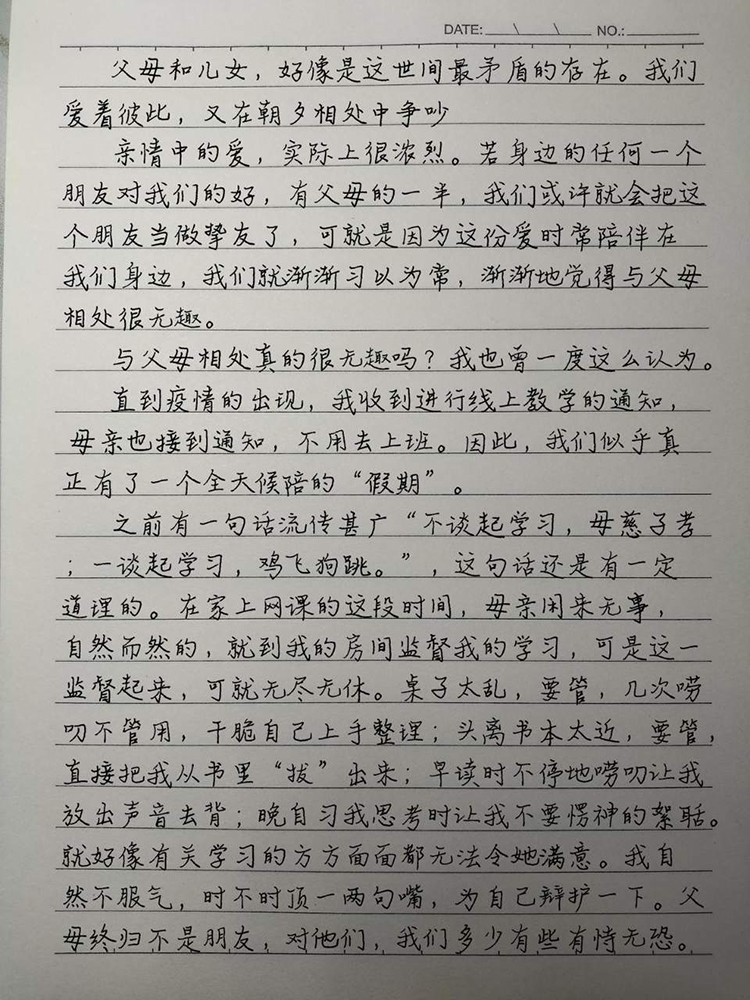 DATE: \ \ NO.:
父母和儿女，好像是这世间最矛盾的存在。我们
爱着彼此，又在朝夕相处中争吵
亲情中的爱，实际上很浓烈。若身边的任何一个
朋友对我们的好，有父母的一半，我们或许就会把这
个朋友当做挚友了，可就是因为这份爱时常陪伴在
我们身边，我们就渐渐习以为常，渐渐地觉得与父母
相处很无趣。
与父母相处真的很无趣吗？我也曾一度这么认为。
直到疫情的出现，我收到进行线上教学的通知，
母亲也接到通知，不用去上班。因此，我们似乎真
正有了一个全天候陪的“假期”。
之前有一句话流传甚广“不谈起学习，母慈子孝
；一谈起学习，鸡飞狗跳。”，这句话还是有一定
道理的。在家上网课的这段时间，母亲闲来无事，
自然而然的，就到我的房间监督我的学习，可是这一
监督起来，可就无尽无休。桌子太乱，要管，几次唠
叨不管用，干脆自己上手整理；头离书本太近，要管，
直接把我从书里“拔”出来；早读时不停地唠叨让我
放出声音去背；晚自习我思考时让我不要愣神的絮聒。
就好像有关学习的方方面面都无法令她满意。我自
然不服气，时不时顶一两句嘴，为自己辩护一下。父
母终归不是朋友，对他们，我们多少有些有恃无恐。